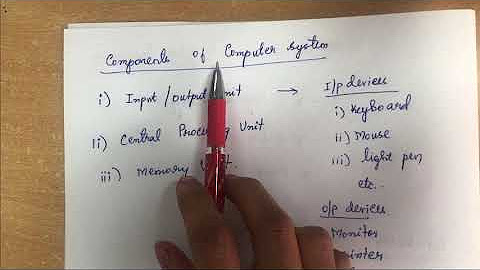 Components of Computer system
i) Input/output unit → I/p devices
i) Keyboard
ii) Central Processing Unit
ii) Mouse
iii) light pen
iii) Memory
etc.
o/p devices
Monitor